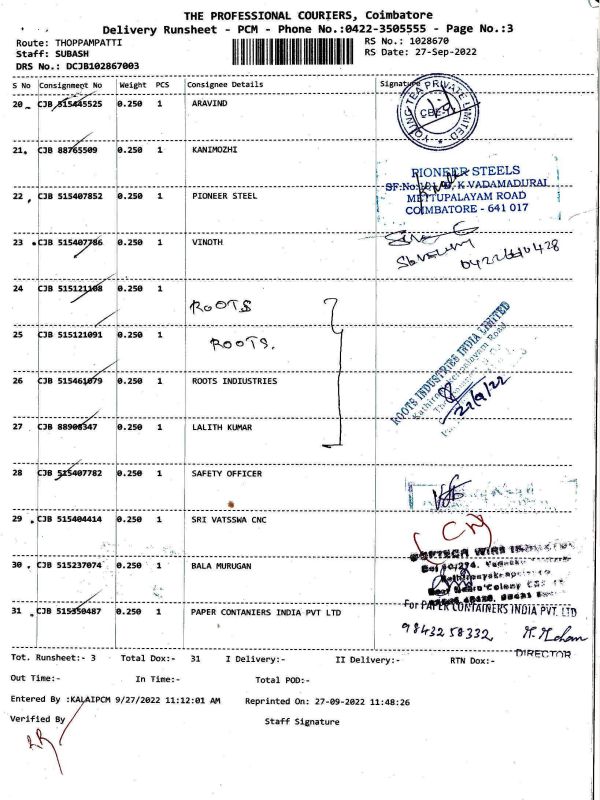 THE PROFESSIONAL COURIERS, Coimbatore
Delivery Runsheet - PCM - Phone No.:0422-3505555 - Page No.:3
Route: THOPPAMPATTI RS No.: 1028670
Staff: SUBASH RS Date: 27-Sep-2022
DRS No.: DCJB102867003
S No Consignment No Weight PCS Consignee Details Signature
20 CJB 515445525 0.250 1 ARAVIND
YOUNG TEA PRIVATE LIMITED
21 CJB 88765509 0.250 1 KANIMOZHI
PIONEER STEELS
K VADAMADURAI
22 CJB 515407852 0.250 1 PIONEER STEEL
METTUPALAYAM ROAD
COIMBATORE - 641 017
23 CJB 515407786 0.250 1 VINOTH
24 CJB 515121108 0.250 1
ROOTS
25 CJB 515121091 0.250 1
ROOTS.
ROOTS INDUSTRIES INDIA LIMITED
26 CJB 515461079 0.250 1 ROOTS INDIUSTRIES
27 CJB 88908347 0.250 1 LALITH KUMAR
28 CJB 515407782 0.250 1 SAFETY OFFICER
29 CJB 515404414 0.250 1 SRI VATSSWA CNC
30 CJB 515237074 0.250 1 BALA MURUGAN
31 CJB 515350487 0.250 1 PAPER CONTANIERS INDIA PVT LTD
For PAPER CONTAINERS INDIA PVT. LTD
9843258332
DIRECTOR
Tot. Runsheet:- 3 Total Dox:- 31 I Delivery:- II Delivery:- RTN Dox:-
Out Time:- In Time:- Total POD:-
Entered By :KALAIPCM 9/27/2022 11:12:01 AM Reprinted On: 27-09-2022 11:48:26
Verified By Staff Signature